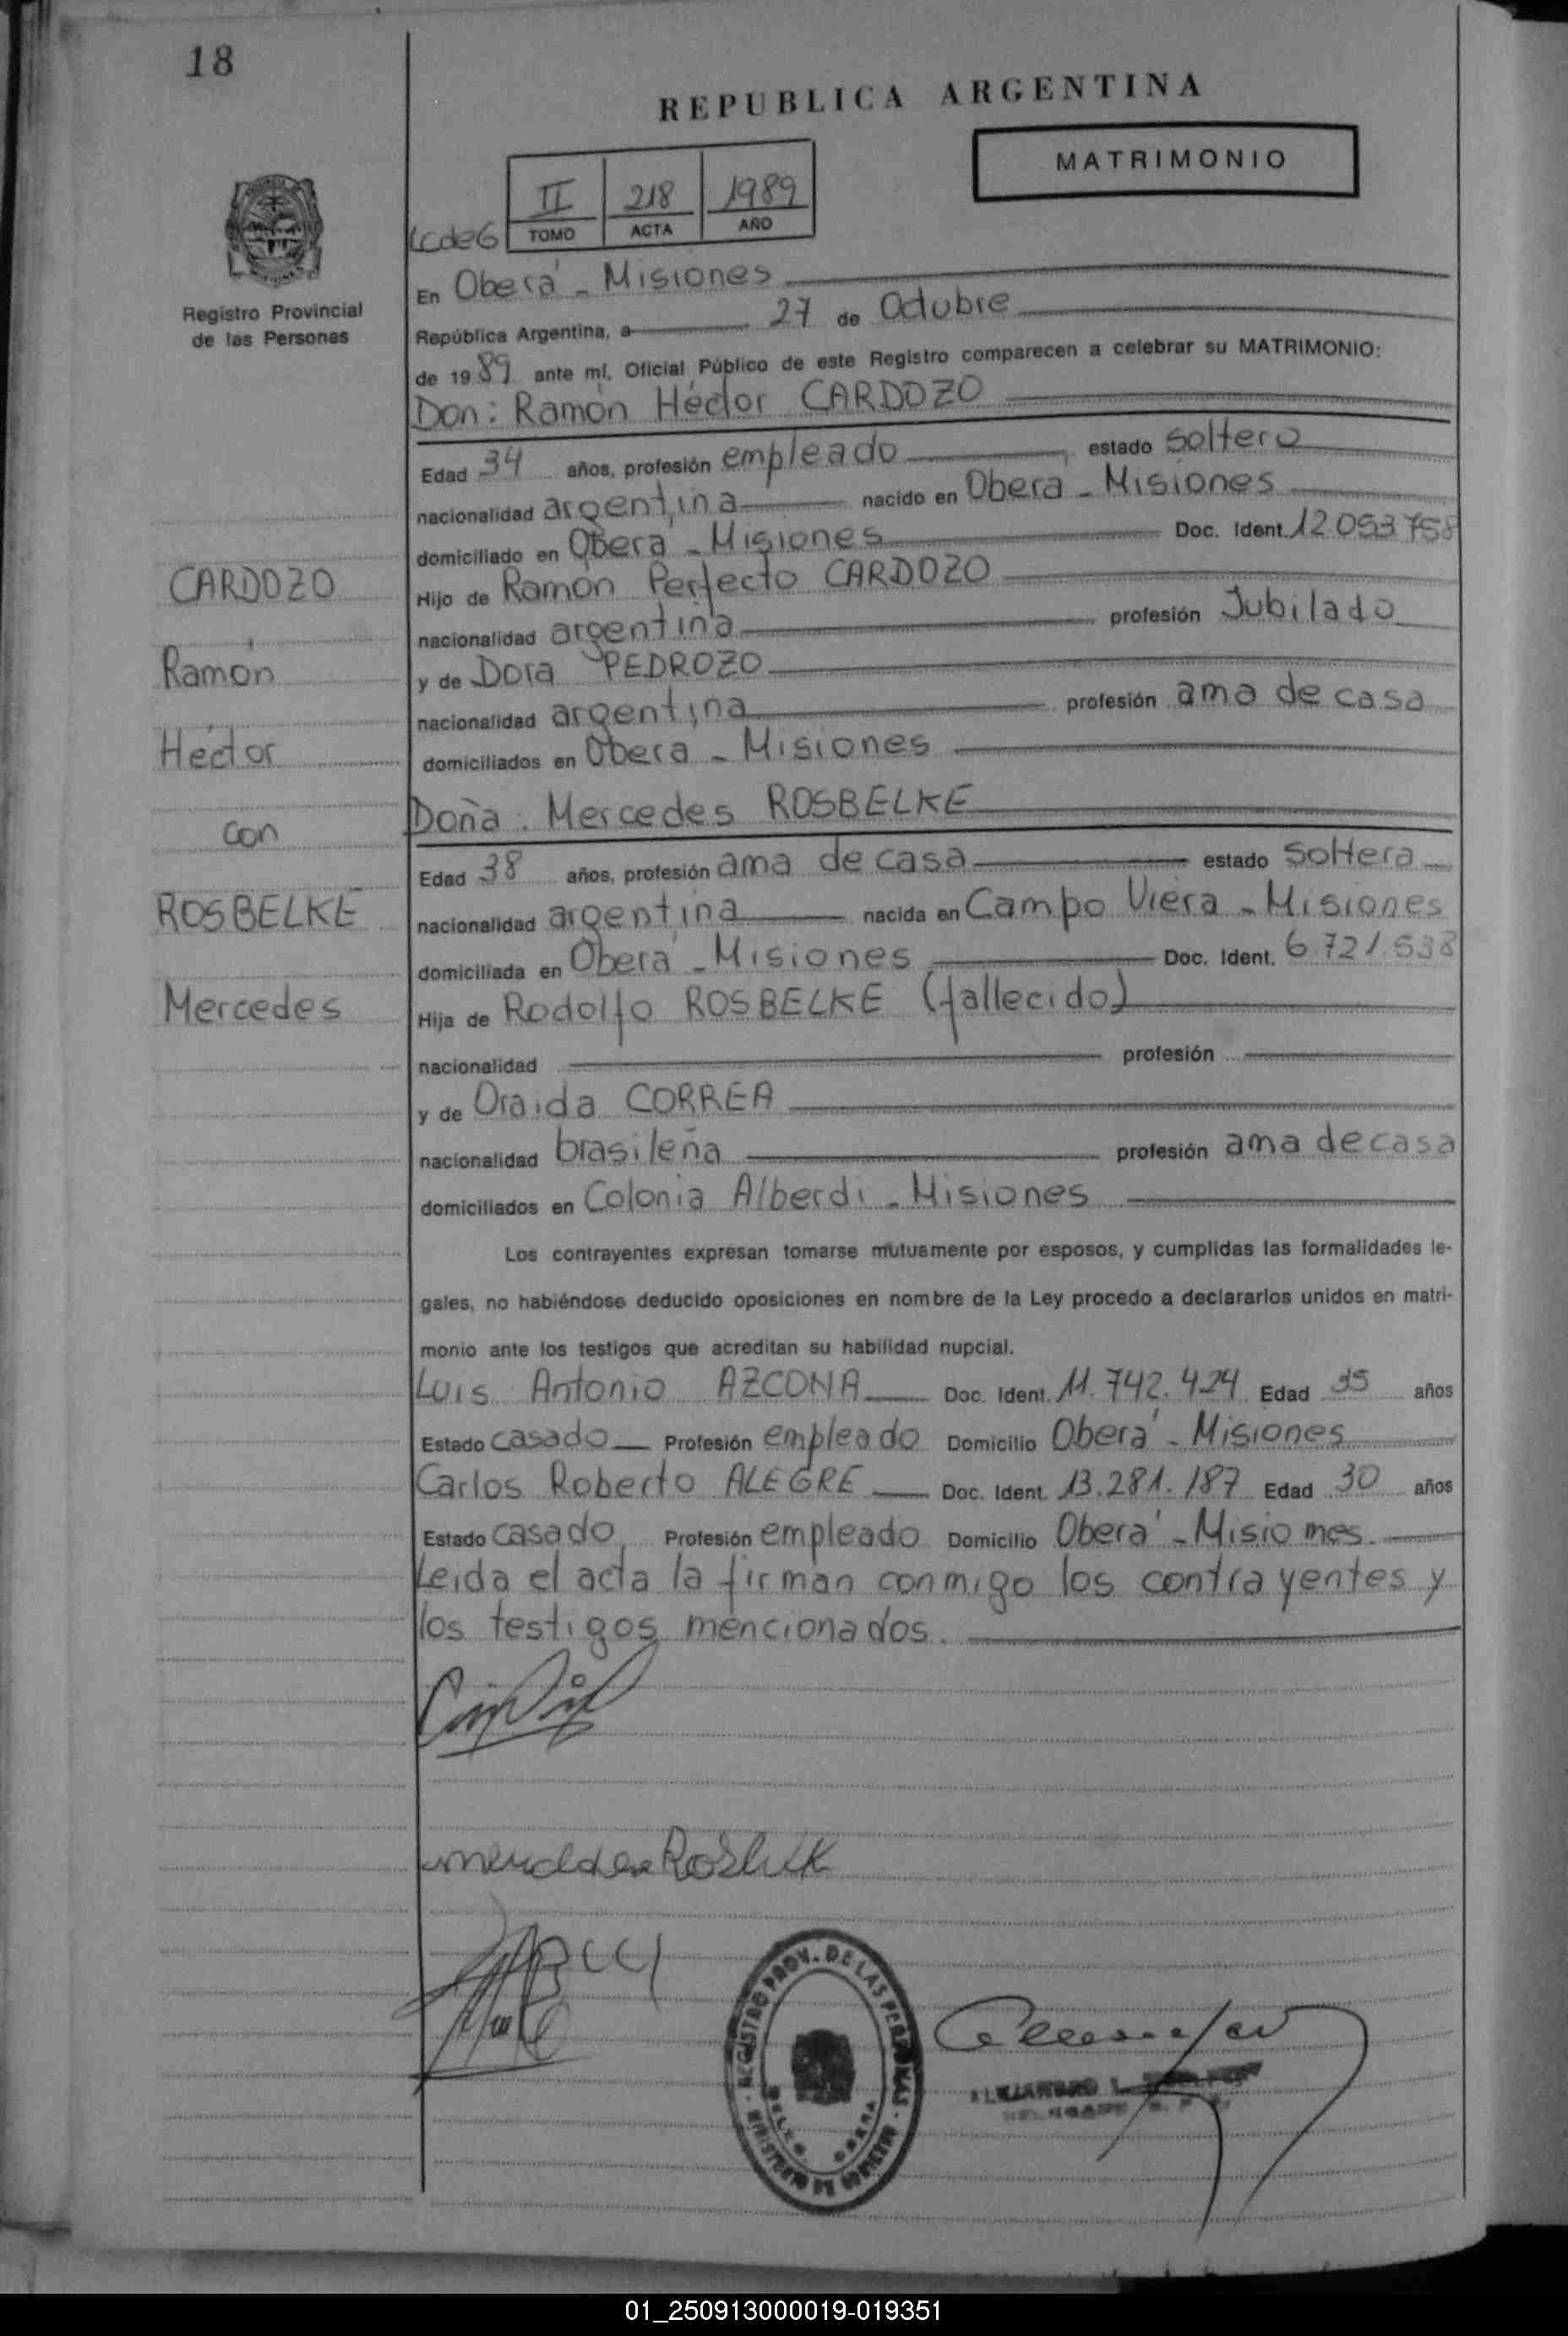 18
REPUBLICA ARGENTINA
MATRIMONIO
II 218 1989
TOMO ACTA AÑO
Registro Provincial
de las Personas
En Oberá - Misiones
República Argentina, a 27 de Octubre
de 1989 ante mí, Oficial Público de este Registro comparecen a celebrar su MATRIMONIO:
Don: Ramón Héctor CARDOZO
Edad 34 años, profesión empleado estado soltero
nacionalidad argentina nacido en Oberá - Misiones
domiciliado en Oberá - Misiones Doc. Ident. 12.053.758
Hijo de Ramón Perfecto CARDOZO
nacionalidad argentina profesión Jubilado
y de Dora PEDROZO
nacionalidad argentina profesión ama de casa
domiciliados en Oberá - Misiones
Doña: Mercedes ROSBELKE
Edad 38 años, profesión ama de casa estado soltera
nacionalidad argentina nacida en Campo Viera - Misiones
domiciliada en Oberá - Misiones Doc. Ident. 6.721.538
Hija de Rodolfo ROSBELKE (fallecido)
nacionalidad profesión
y de Oraida CORREA
nacionalidad brasileña profesión ama de casa
domiciliados en Colonia Alberdi - Misiones
Los contrayentes expresan tomarse mutuamente por esposos, y cumplidas las formalidades le-
gales, no habiéndose deducido oposiciones en nombre de la Ley procedo a declararlos unidos en matri-
monio ante los testigos que acreditan su habilidad nupcial.
Luis Antonio AZCONA Doc. Ident. 11.742.424 Edad 35 años
Estado casado Profesión empleado Domicilio Oberá - Misiones
Carlos Roberto ALEGRE Doc. Ident. 13.281.187 Edad 30 años
Estado casado Profesión empleado Domicilio Oberá - Misiones.
Leida el acta la firman conmigo los contrayentes y
los testigos mencionados.
CARDOZO
Ramón
Héctor
con
ROSBELKE
Mercedes
REGISTRO PROV. DE LAS PERSONAS
01_250913000019-019351